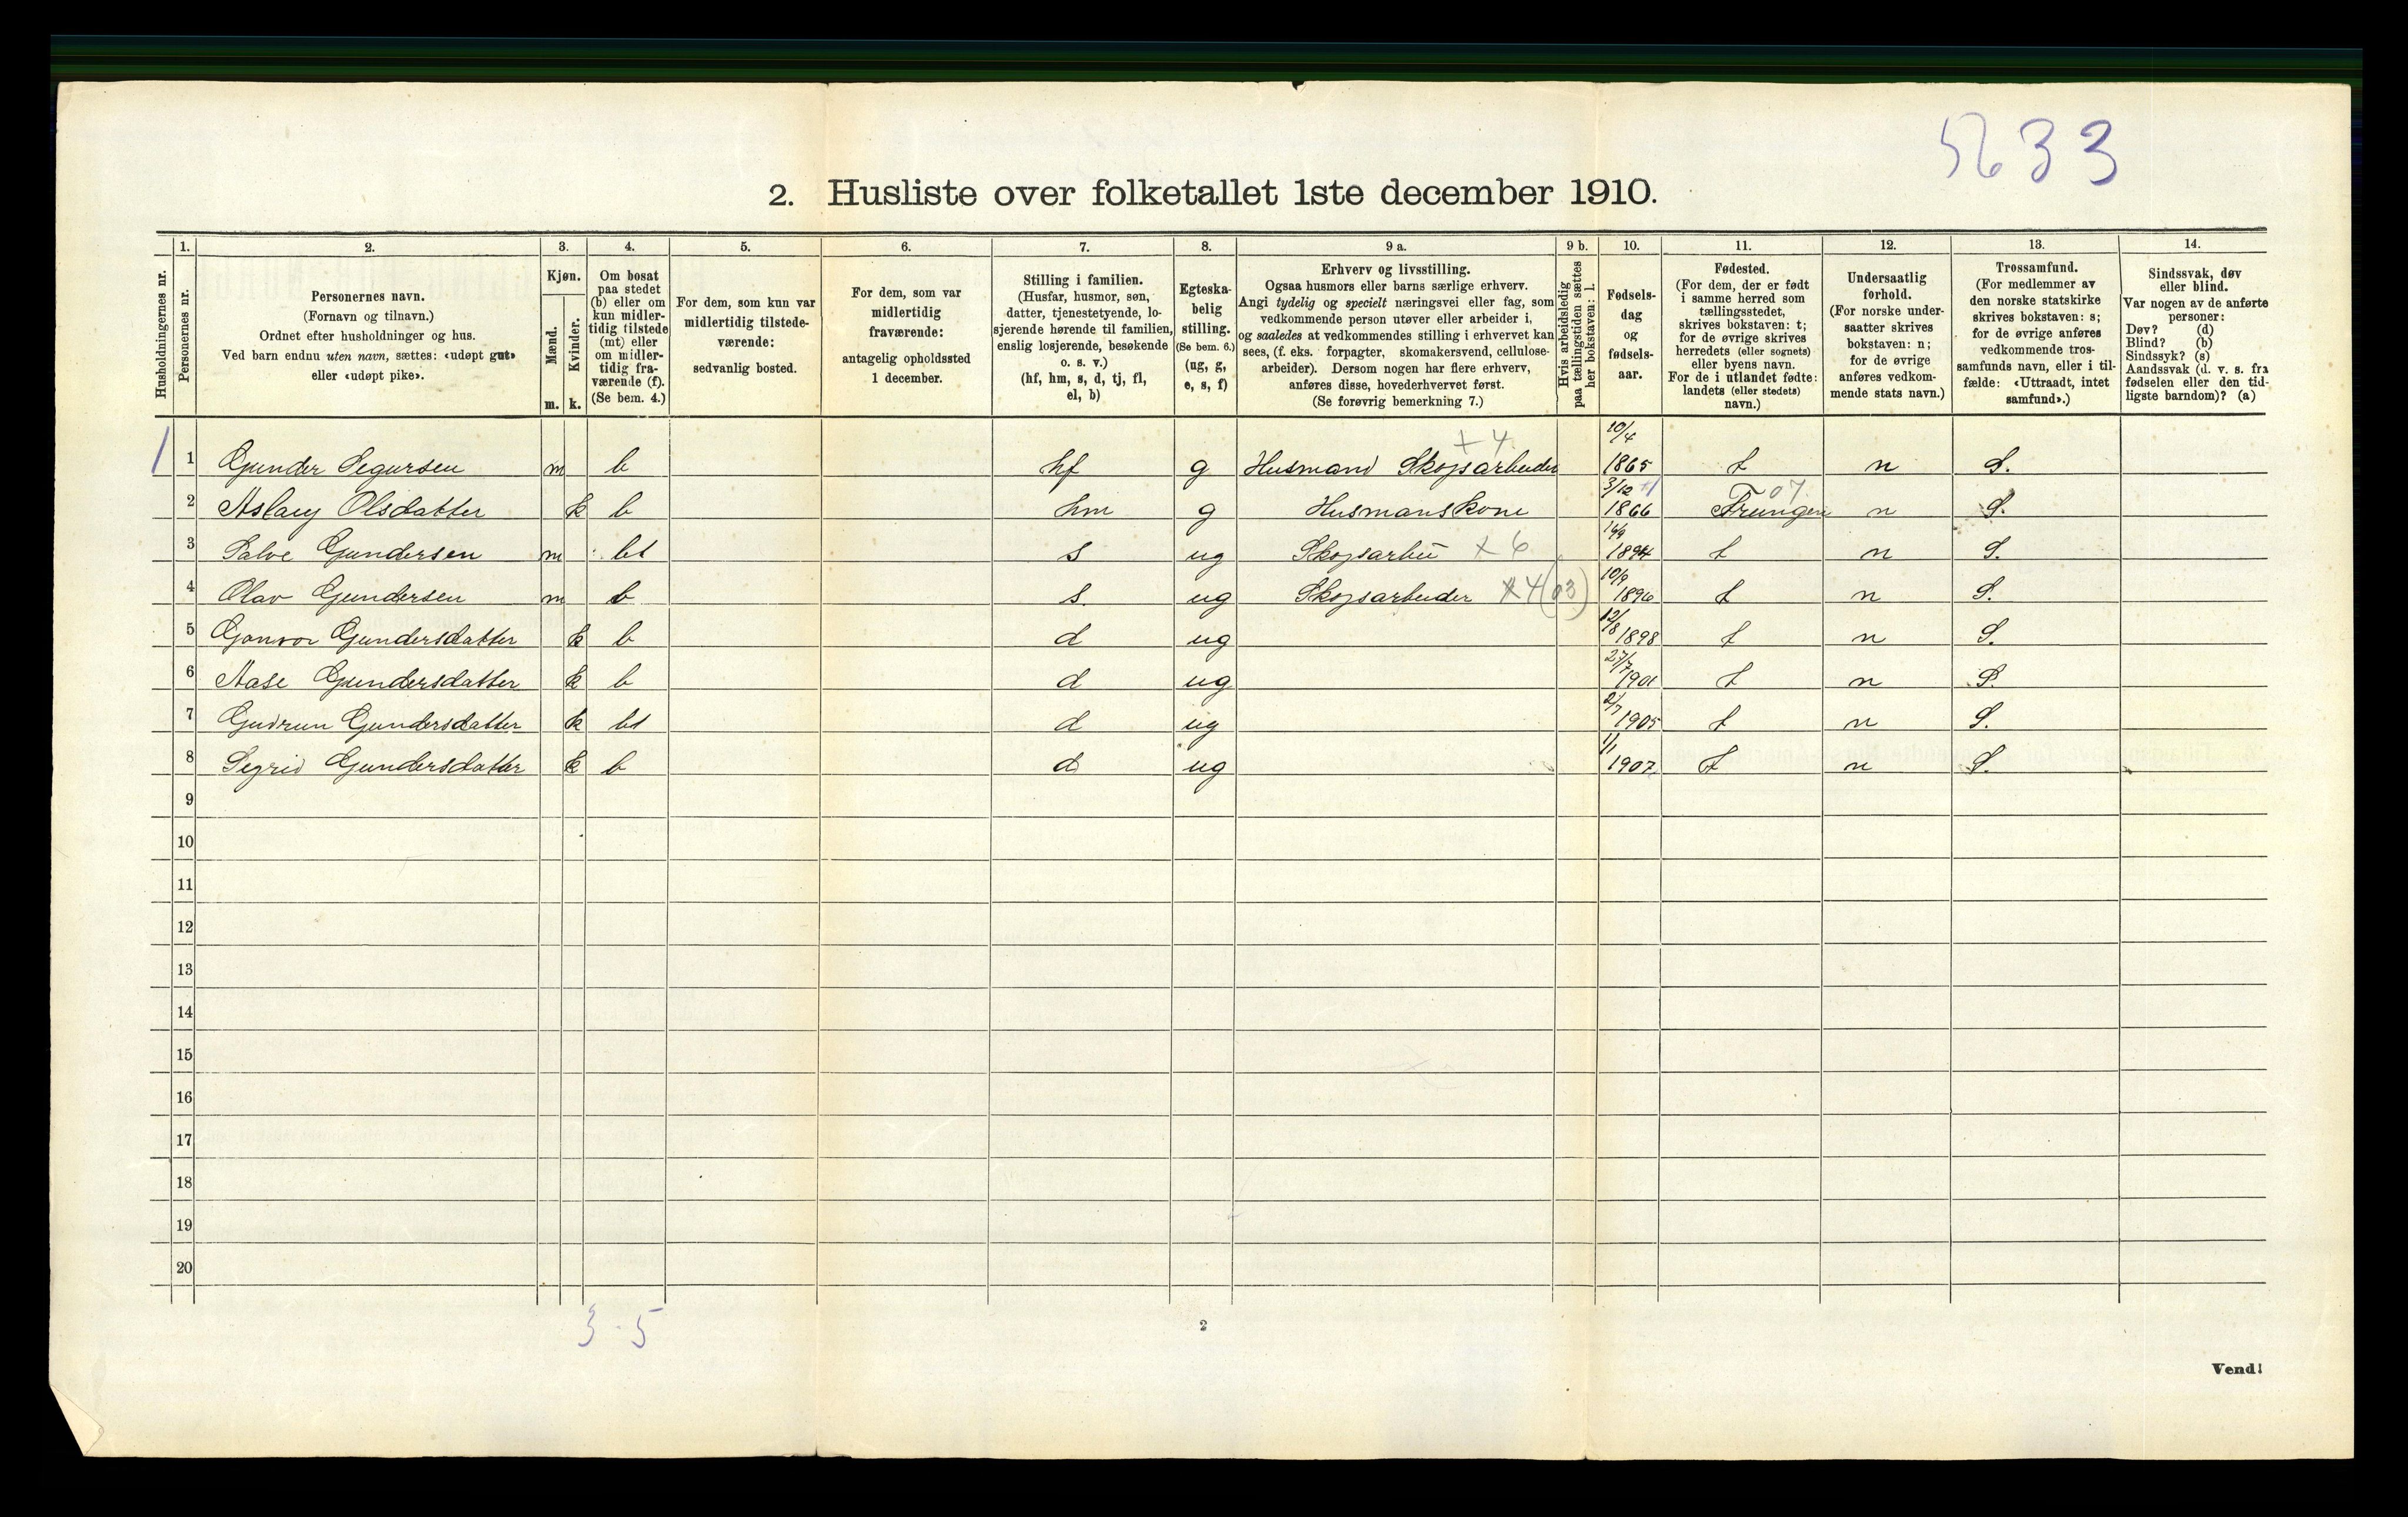 5633
2. Husliste over folketallet 1ste december 1910.
Husholdningernes nr.
1.
Personernes nr.
2.
Personernes navn.
(Fornavn og tilnavn.)
Ordnet efter husholdninger og hus.
Ved barn endnu uten navn, sættes: «udøpt gut»
eller «udøpt pike».
3.
Kjøn.
Mænd.
Kvinder.
m.
k.
4.
Om bosat
paa stedet
(b) eller om
kun midler-
tidig tilstede
(mt) eller
om midler-
tidig fra-
værende (f).
(Se bem. 4.)
5.
For dem, som kun var
midlertidig tilstede-
værende:
sedvanlig bosted.
6.
For dem, som var
midlertidig
fraværende:
antagelig opholdssted
1 december.
7.
Stilling i familien.
(Husfar, husmor, søn,
datter, tjenestetyende, lo-
sjerende hørende til familien,
enslig losjerende, besøkende
o. s. v.)
(hf, hm, s, d, tj, fl,
el, b)
8.
Egteska-
belig
stilling.
(Se bem. 6.)
(ug, g,
e, s, f)
9 a.
Erhverv og livsstilling.
Ogsaa husmors eller barns særlige erhverv.
Angi tydelig og specielt næringsvei eller fag, som
vedkommende person utøver eller arbeider i,
og saaledes at vedkommendes stilling i erhvervet kan
sees, (f. eks. forpagter, skomakersvend, cellulose-
arbeider). Dersom nogen har flere erhverv,
anføres disse, hovederhvervet først.
(Se forøvrig bemerkning 7.)
9 b.
Hvis arbeidsledig
paa tællingstiden sættes
her bokstaven: l.
10.
Fødsels-
dag
og
fødsels-
aar.
11.
Fødested.
(For dem, der er født
i samme herred som
tællingsstedet,
skrives bokstaven: t;
for de øvrige skrives
herredets (eller sognets)
eller byens navn.
For de i utlandet fødte:
landets (eller stedets)
navn.)
12.
Undersaatlig
forhold.
(For norske under-
saatter skrives
bokstaven: n;
for de øvrige
anføres vedkom-
mende stats navn.)
13.
Trossamfund.
(For medlemmer av
den norske statskirke
skrives bokstaven: s;
for de øvrige anføres
vedkommende tros-
samfunds navn, eller i til-
fælde: «Uttraadt, intet
samfund».)
14.
Sindssvak, døv
eller blind.
Var nogen av de anførte
personer:
Døv? (d)
Blind? (b)
Sindssyk? (s)
Aandssvak (d. v. s. fra
fødselen eller den tid-
ligste barndom)? (a)
1 1 Gunder Segursen m b hf g Husmand Skogsarbeider +4 10/4 1865 t n S.
2 Aslaug Olsdatter k b hm g Husmanskone 3/12 1866 07 n S.
3 Salve Gundersen m bt s ug Skogsarbei x 6 1894 t n S.
4 Olav Gundersen m b s. ug Skogsarbeider x4(03) 10/9 1896 t n S.
5 Gonvor Gundersdatter k b d ug 12/8 1898 t n S.
6 Aase Gundersdatter k b d ug 27/7 1901 t n S.
7 Gudrun Gundersdatter k bt d ug 2/7 1905 t n S.
8 Segrid Gundersdatter k b d ug 1/1 1907 t n S.
9
10
11
12
13
14
15
16
17
18
19
20
3-5
2
Vend!